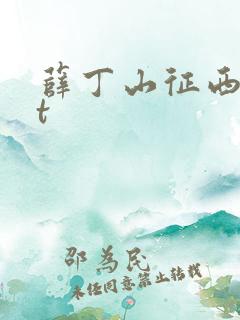 薛丁山征西
t
邵为民
未经同意禁止转载